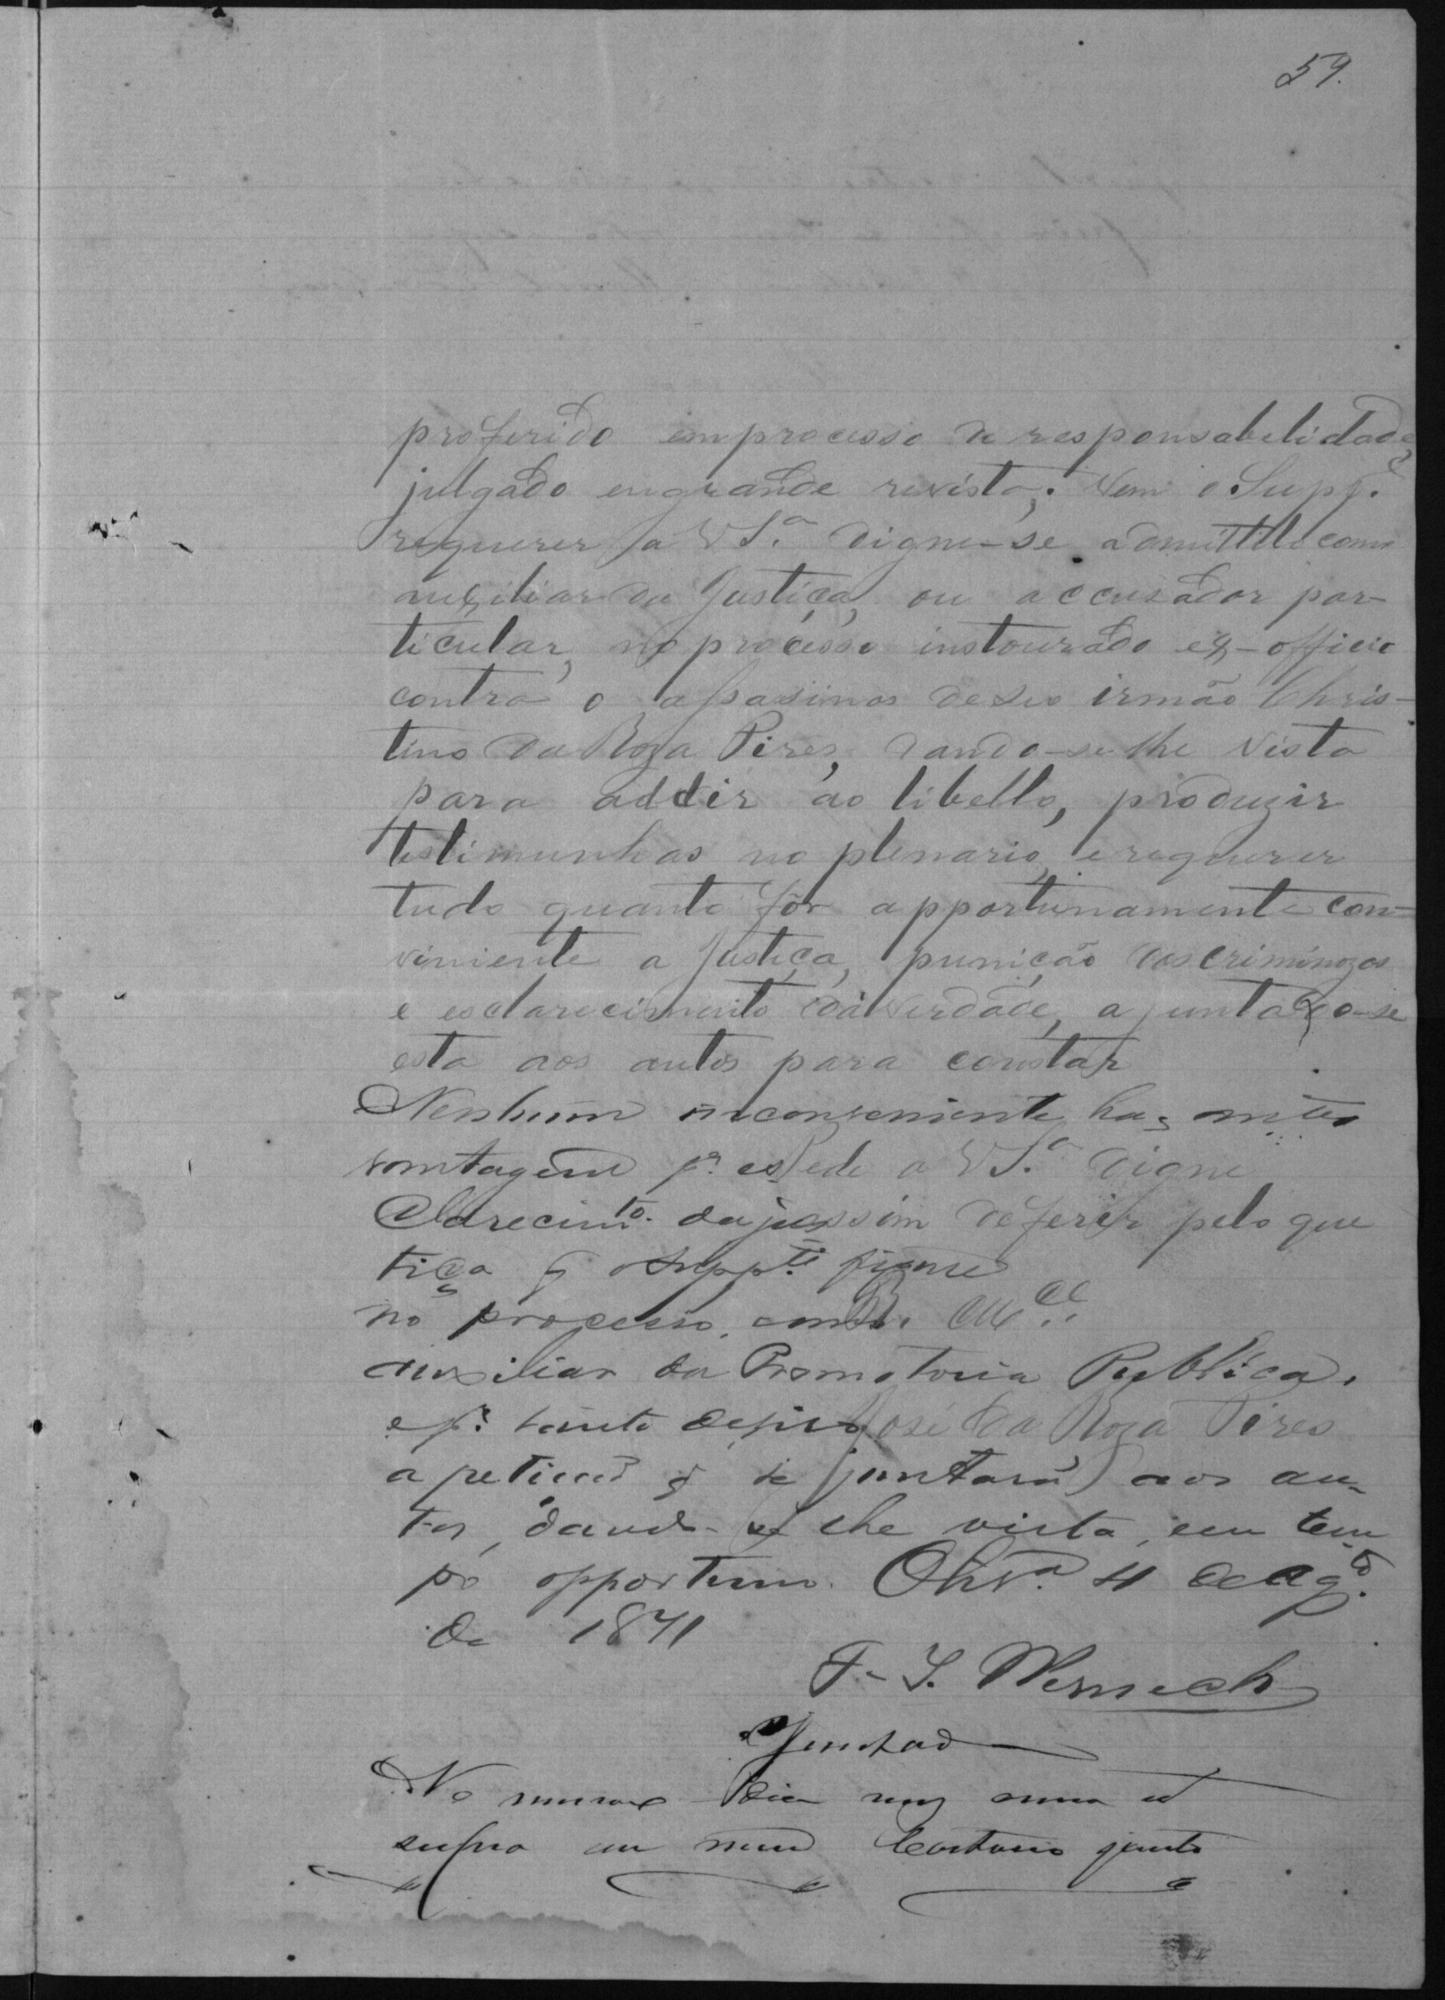 59.
proferido em processo de responsabelidade,
julgado em grande revista; Vem o Supp.e
requerer a V S.a digne-se admittilo como
auxiliar da Justiça, ou accusador par-
ticular, no processo instourado ex-officio
contra o assassinos de seo irmão Chris-
tino da Roza Pires, dando-se lhe vista
para addir ao libello, produzir
testimunhas no plenario, e requerer
tudo quanto fôr apportunamente con-
viniente a Justiça, punição dos criminozos
e esclarecimento da verdade, ajuntando-se
esta aos autos para constar
Nenhum inconveniente ha, antes
vantagem p.a es Pede a V S.a digne
clarecim.to da jus assim deferir pelo que
tiça q o Supp.te figure
no processo, como E R M.ce
auxiliar da Promotoria Publica,
e p.r tanto defiro José da Roza Pires
a petição q se juntará aos au-
tos, dando-se lhe vista, em tem
po opportuno. 4 de Ag.to
de 1871
F. S. Werneck
Juntada
No mesmo dia mez anno et
supra em meu Cartorio junto